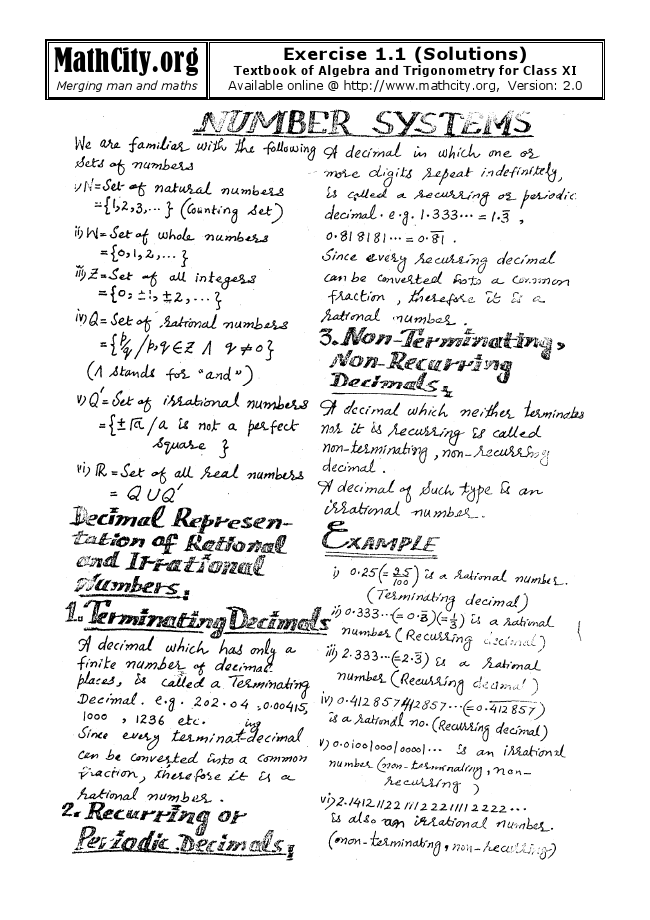 MathCity.org
Merging man and maths
Exercise 1.1 (Solutions)
Textbook of Algebra and Trigonometry for Class XI
Available online @ http://www.mathcity.org, Version: 2.0
NUMBER SYSTEMS
We are familiar with the following
sets of numbers
i) N=Set of natural numbers
={1,2,3,...} (Counting Set)
ii) W=Set of whole numbers
={0,1,2,...}
iii) Z=Set of all integers
={0,±1,±2,...}
iv) Q=Set of rational numbers
={p/q / p,q∈Z ∧ q≠0}
(∧ stands for "and")
v) Q'=Set of irrational numbers
={±√a / a is not a perfect
square }
vi) ℝ=Set of all real numbers
= Q∪Q'
Decimal Represen-
tation of Rational
and Irrational
Numbers:
1. Terminating Decimals
A decimal which has only a
finite number of decimal
places, is called a Terminating
Decimal. e.g. 202.04, 0.00415,
1000, 1236 etc.
Since every terminating decimal
can be converted into a common
fraction, therefore it is a
rational number.
2. Recurring or
Periodic Decimals:
A decimal in which one or
more digits repeat indefinitely,
is called a recurring or periodic
decimal. e.g. 1.333... = 1.3̅,
0.818181... = 0.8̅1̅.
Since every recurring decimal
can be converted into a common
fraction, therefore it is a
rational number.
3. Non-Terminating,
Non-Recurring
Decimals:
A decimal which neither terminates
nor it is recurring is called
non-terminating, non-recurring
decimal.
A decimal of such type is an
irrational number.
EXAMPLE
i) 0.25(=25/100) is a rational number.
(Terminating decimal)
ii) 0.333...(=0.3̅)(=1/3) is a rational
number (Recurring decimal)
iii) 2.333...(=2.3̅) is a rational
number (Recurring decimal)
iv) 0.412857412857...(=0.4̅1̅2̅8̅5̅7̅)
is a rational no. (Recurring decimal)
v) 0.01001000100001... is an irrational
number (non-terminating, non-
recurring)
vi) 2.1412112211122211112222...
is also an irrational number.
(non-terminating, non-recurring)